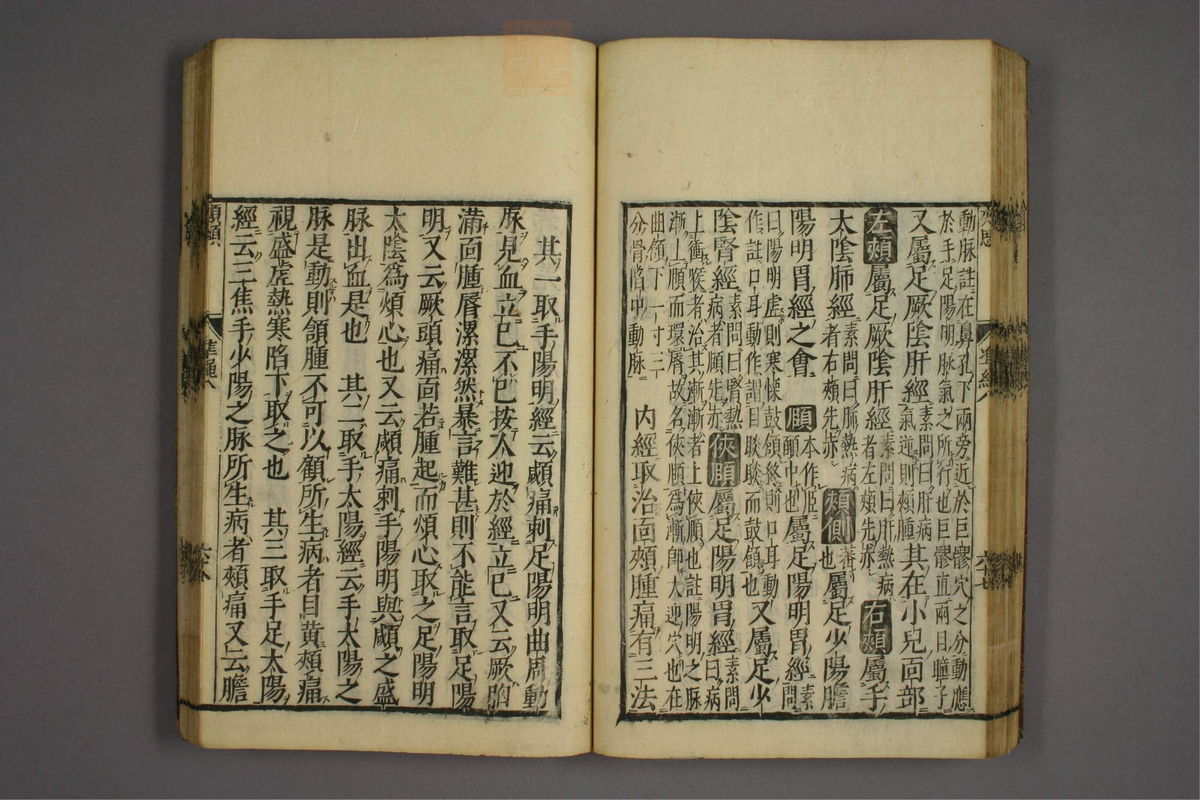 動脉註在鼻孔下兩旁近於巨髎穴之分動應
於手足陽明脉氣之所行也巨髎直兩目瞳子
又屬足厥陰肝經素問曰肝病氣逆則頰腫其在小兒面部
左頰屬足厥陰肝經素問曰肝熱病者左頰先赤右頰屬手
太陰肺經素問曰肺熱病者右頰先赤頰側蕃也屬足少陽膽
陽明胃經之會頤本作𦣞顄中也屬足陽明胃經素問
曰陽明虚則寒慄鼓頷終則口耳動
作註口耳動作謂目睒睒而鼓頷也又屬足少
陰腎經素問曰腎熱病者頤先赤俠頤屬足陽明胃經素問曰病
上衝喉者治其漸漸者上俠頤也註陽明之脉
漸上頤而環唇故名俠頤爲漸即大迎穴也在
曲頷下一寸三分骨陷中動脉
內經取治面頰腫痛有三法
其一取手陽明經云顑痛刺足陽明曲周動
脉見血立已不已按人迎於經立已又云厥胸
滿面腫唇漯漯然暴言難甚則不能言取足陽
明又云厥頭痛面若腫起而煩心取之足陽明
太陰爲煩心也又云顑痛刺手陽明與顑之盛
脉出血是也 其二取手太陽經云手太陽之
脉是動則頷腫不可以顧所生病者目黃頰痛
視盛虚熱寒陷下取之也 其三取手足太陽
經云三焦手少陽之脉所生病者頰痛又云膽
準繩八